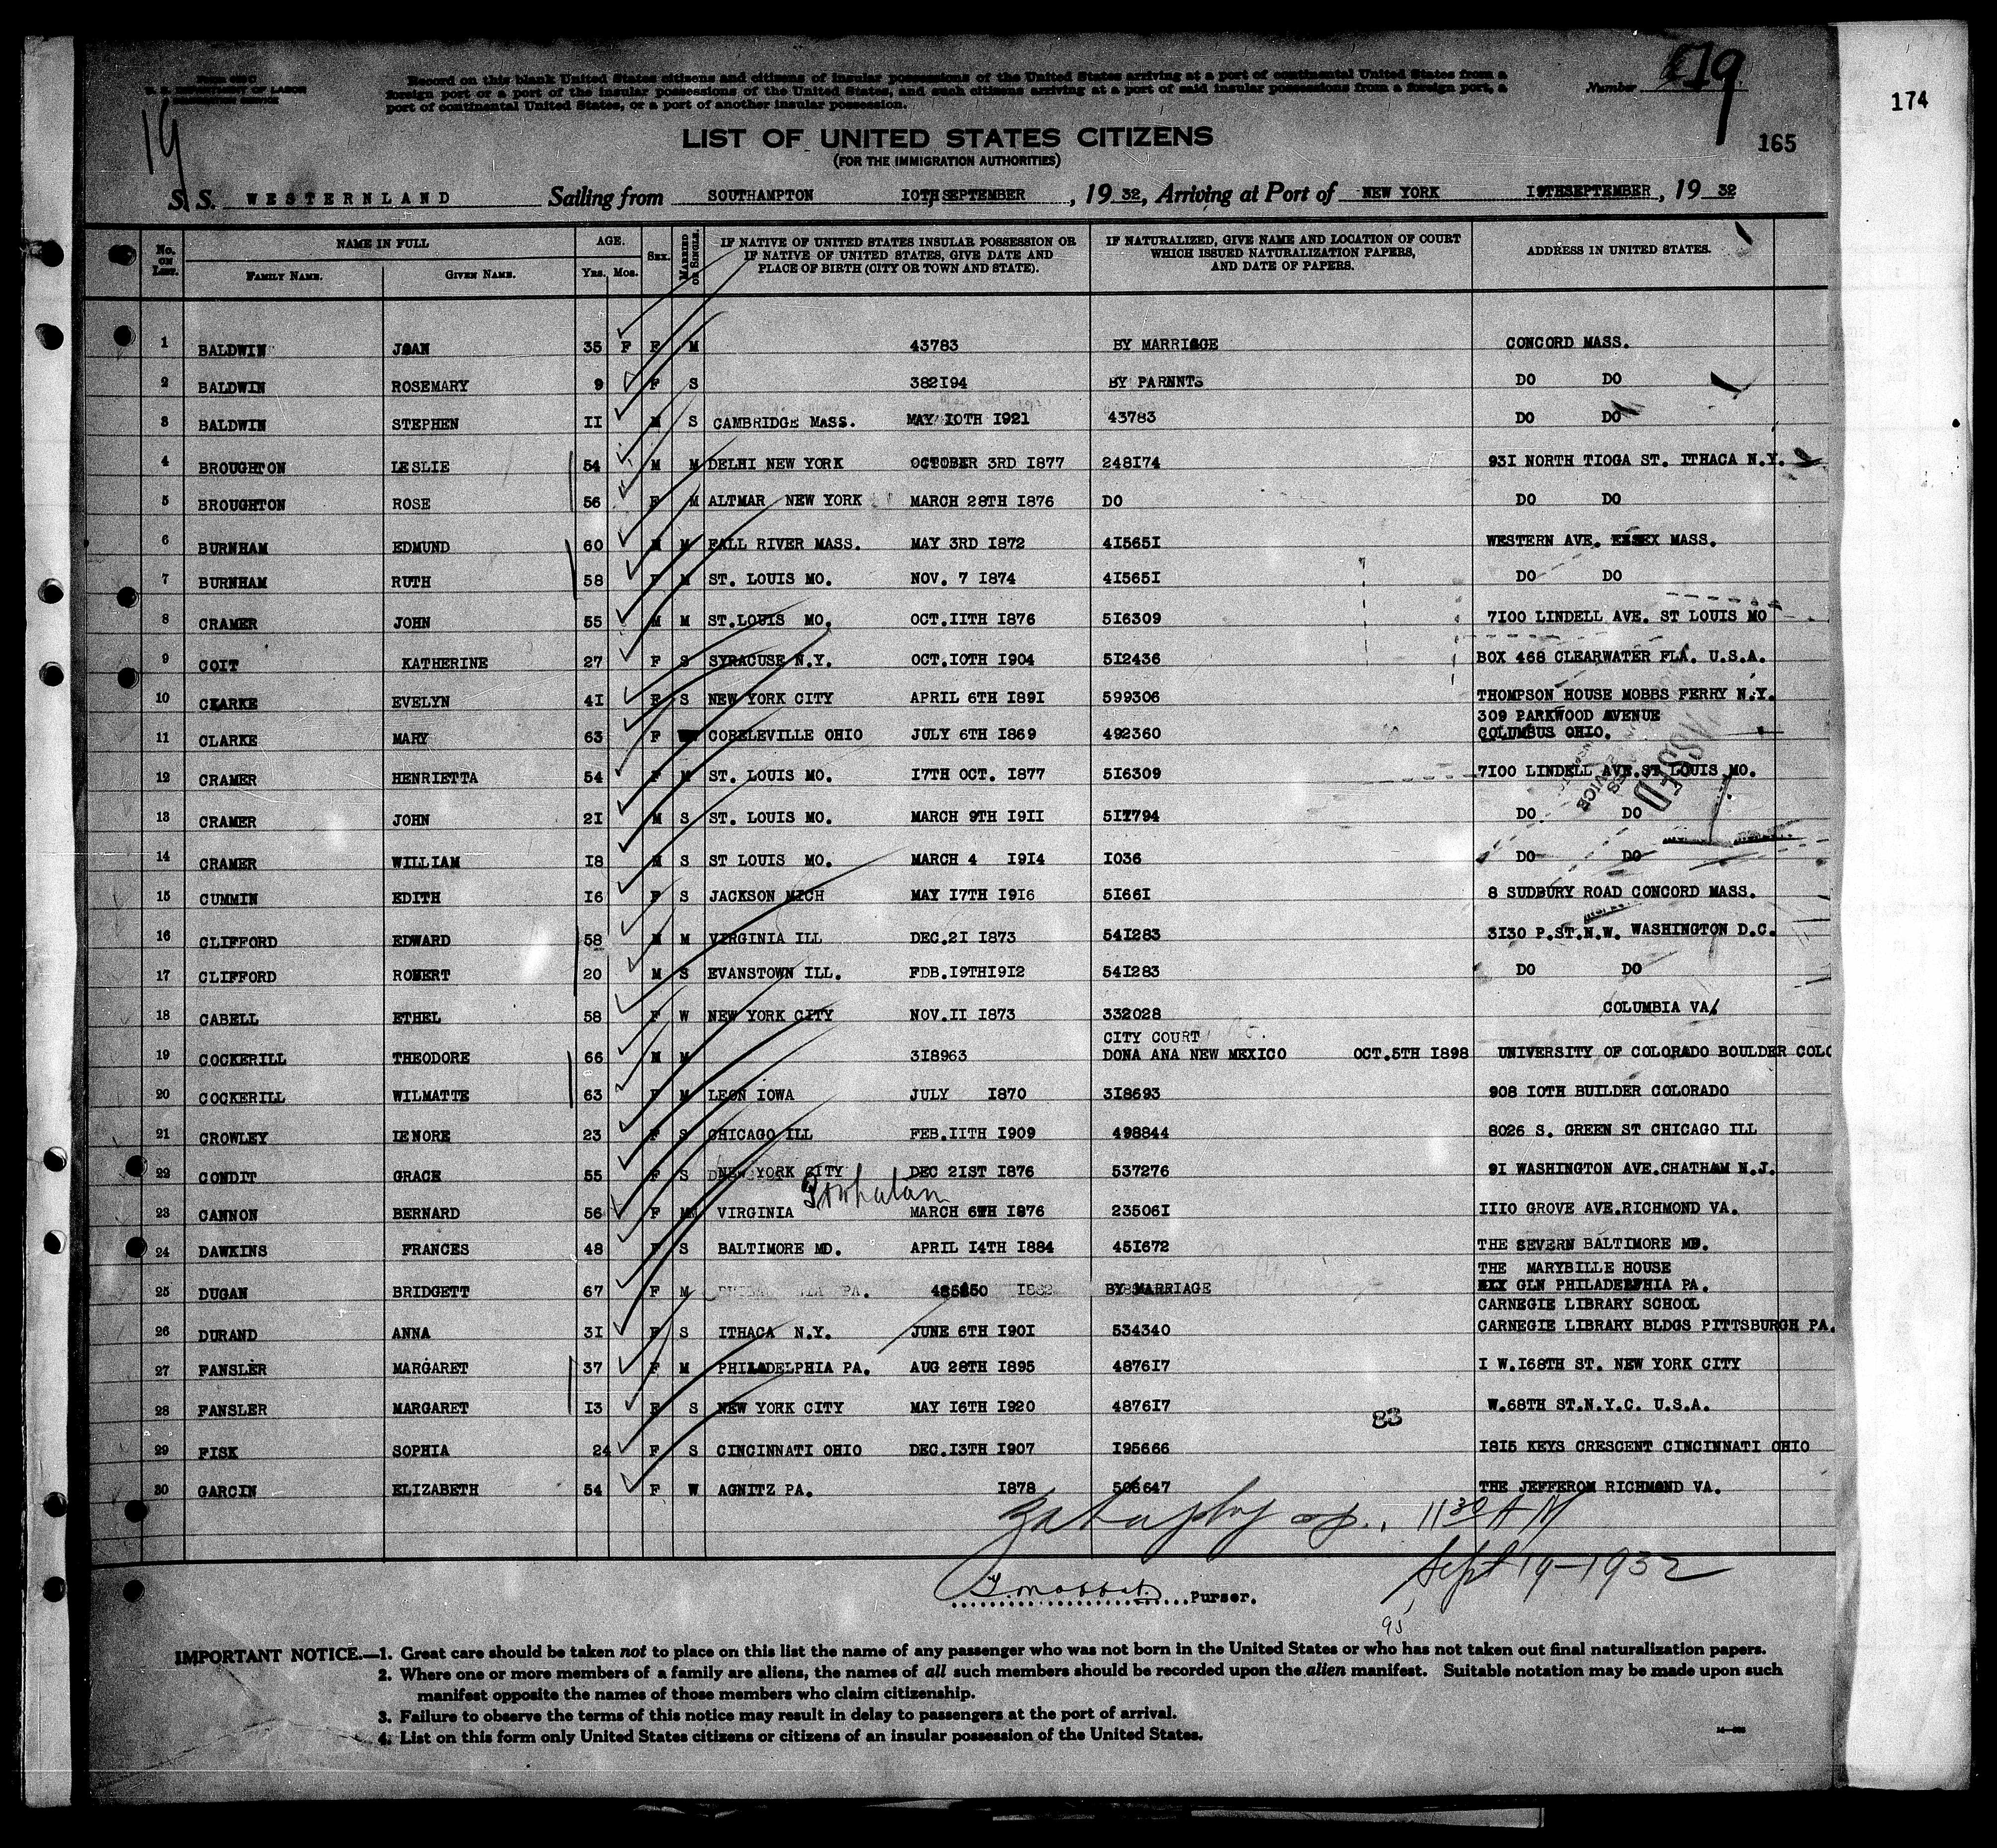 Form 630 C
U. S. DEPARTMENT OF LABOR
IMMIGRATION SERVICE
Record on this blank United States citizens and citizens of insular possessions of the United States arriving at a port of continental United States from a
foreign port or a port of the insular possessions of the United States, and such citizens arriving at a port of said insular possessions from a foreign port, a
port of continental United States, or a port of another insular possession.
Number 19
174
19
LIST OF UNITED STATES CITIZENS
(FOR THE IMMIGRATION AUTHORITIES)
165
S. S. WESTERNLAND Sailing from SOUTHAMPTON IOTH SEPTEMBER, 19 32, Arriving at Port of NEW YORK I9THSEPTEMBER, 19 32
No. ON LIST. NAME IN FULL FAMILY NAME. GIVEN NAME. AGE. Yrs. Mos. SEX. MARRIED OR SINGLE. IF NATIVE OF UNITED STATES INSULAR POSSESSION OR IF NATIVE OF UNITED STATES, GIVE DATE AND PLACE OF BIRTH (CITY OR TOWN AND STATE). IF NATURALIZED, GIVE NAME AND LOCATION OF COURT WHICH ISSUED NATURALIZATION PAPERS, AND DATE OF PAPERS. ADDRESS IN UNITED STATES.
1 BALDWIN JOAN 35 F F M 43783 BY MARRIAGE CONCORD MASS.
2 BALDWIN ROSEMARY 9 F S 382I94 BY PARNNTS DO DO
3 BALDWIN STEPHEN II M S CAMBRIDGE MASS. MAY IOTH I92I 43783 DO DO
4 BROUGHTON LESLIE 54 M M DELHI NEW YORK OCTOBER 3RD I877 248I74 93I NORTH TIOGA ST. ITHACA N.Y.
5 BROUGHTON ROSE 56 F M ALTMAR NEW YORK MARCH 28TH I876 DO DO DO
6 BURNHAM EDMUND 60 M M FALL RIVER MASS. MAY 3RD I872 4I565I WESTERN AVE. ESSEX MASS.
7 BURNHAM RUTH 58 F M ST. LOUIS MO. NOV. 7 I874 4I565I DO DO
8 CRAMER JOHN 55 M M ST.LOUIS MO. OCT.IITH I876 5I6309 7I00 LINDELL AVE. ST LOUIS MO
9 COIT KATHERINE 27 F S SYRACUSE N.Y. OCT.IOTH I904 5I2436 BOX 468 CLEARWATER FLA. U.S.A.
10 CLARKE EVELYN 4I F S NEW YORK CITY APRIL 6TH I89I 599306 THOMPSON HOUSE MOBBS FERRY N.Y.
309 PARKWOOD AVENUE
11 CLARKE MARY 63 F COBELEVILLE OHIO JULY 6TH I869 492360 COLUMBUS OHIO.
12 CRAMER HENRIETTA 54 F M ST. LOUIS MO. I7TH OCT. I877 5I6309 7I00 LINDELL AVE.ST LOUIS MO.
13 CRAMER JOHN 2I M S ST. LOUIS MO. MARCH 9TH I9II 5I7794 DO DO
14 CRAMER WILLIAM I8 M S ST LOUIS MO. MARCH 4 I9I4 I036 DO DO
15 CUMMIN EDITH I6 F S JACKSON MICH MAY I7TH I9I6 5I66I 8 SUDBURY ROAD CONCORD MASS.
16 CLIFFORD EDWARD 58 M M VIRGINIA ILL DEC.2I I873 54I283 3I30 P.ST.N.W. WASHINGTON D.C.
17 CLIFFORD ROBERT 20 M S EVANSTOWN ILL. FDB.I9THI9I2 54I283 DO DO
18 CABELL ETHEL 58 F W NEW YORK CITY NOV.II I873 332028 COLUMBIA VA
CITY COURT
19 COCKERILL THEODORE 66 M M 3I8963 DONA ANA NEW MEXICO OCT.5TH I898 UNIVERSITY OF COLORADO BOULDER COLO
20 COCKERILL WILMATTE 63 F M LEON IOWA JULY I870 3I8693 908 IOTH BUILDER COLORADO
21 CROWLEY IENORE 23 F S CHICAGO ILL FEB.IITH I909 498844 8026 S. GREEN ST CHICAGO ILL
22 CONDIT GRACE 55 F S NEW YORK CITY DEC 2IST I876 537276 9I WASHINGTON AVE.CHATHAM N.J.
Powhatan
23 CANNON BERNARD 56 F M VIRGINIA MARCH 6TH I876 23506I III0 GROVE AVE.RICHMOND VA.
24 DAWKINS FRANCES 48 F S BALTIMORE MD. APRIL I4TH I884 45I672 THE SEVERN BALTIMORE MD.
THE MARYBILLE HOUSE
25 DUGAN BRIDGETT 67 F M PA. BY MARRIAGE GLN PHILADELPHIA PA.
CARNEGIE LIBRARY SCHOOL
26 DURAND ANNA 3I F S ITHACA N.Y. JUNE 6TH I90I 534340 CARNEGIE LIBRARY BLDGS PITTSBURGH PA.
27 FANSLER MARGARET 37 F M PHILADELPHIA PA. AUG 28TH I895 4876I7 I W.I68TH ST. NEW YORK CITY
28 FANSLER MARGARET I3 F S NEW YORK CITY MAY I6TH I920 4876I7 W.68TH ST.N.Y.C. U.S.A.
83
29 FISK SOPHIA 24 F S CINCINNATI OHIO DEC.I3TH I907 I95666 I8I5 KEYS CRESCENT CINCINNATI OHIO
30 GARCIN ELIZABETH 54 F W AGNITZ PA. I878 506647 THE JEFFEROM RICHMOND VA.
1130 AM
Sept 19-1932
Purser.
95
IMPORTANT NOTICE.—1. Great care should be taken not to place on this list the name of any passenger who was not born in the United States or who has not taken out final naturalization papers.
2. Where one or more members of a family are aliens, the names of all such members should be recorded upon the alien manifest. Suitable notation may be made upon such
manifest opposite the names of those members who claim citizenship.
3. Failure to observe the terms of this notice may result in delay to passengers at the port of arrival.
4. List on this form only United States citizens or citizens of an insular possession of the United States.